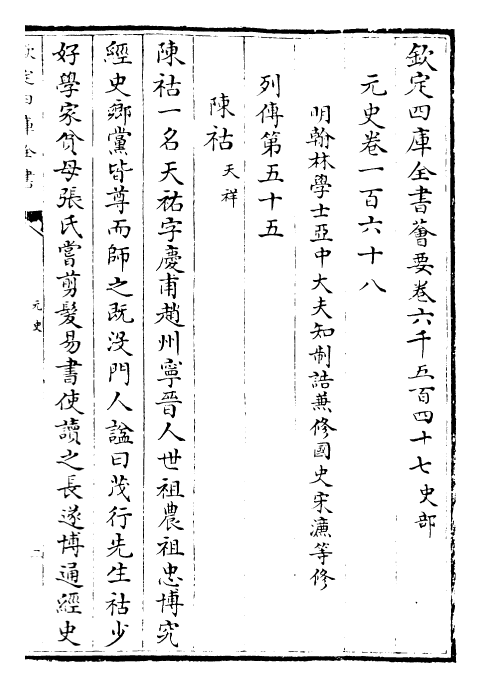 欽定四庫全書薈要卷六千五百四十七史部
元史卷一百六十八
明翰林學士亞中大夫知制誥兼修國史宋濂等修
列傳第五十五
陳祜天祥
陳祜一名天祐字慶甫趙州寧晉人世祖農祖忠博究
經史鄉黨皆尊而師之既沒門人諡曰茂行先生祜少
好學家貧母張氏嘗剪髮易書使讀之長遂博通經史
欽定四庫全書
元史
一